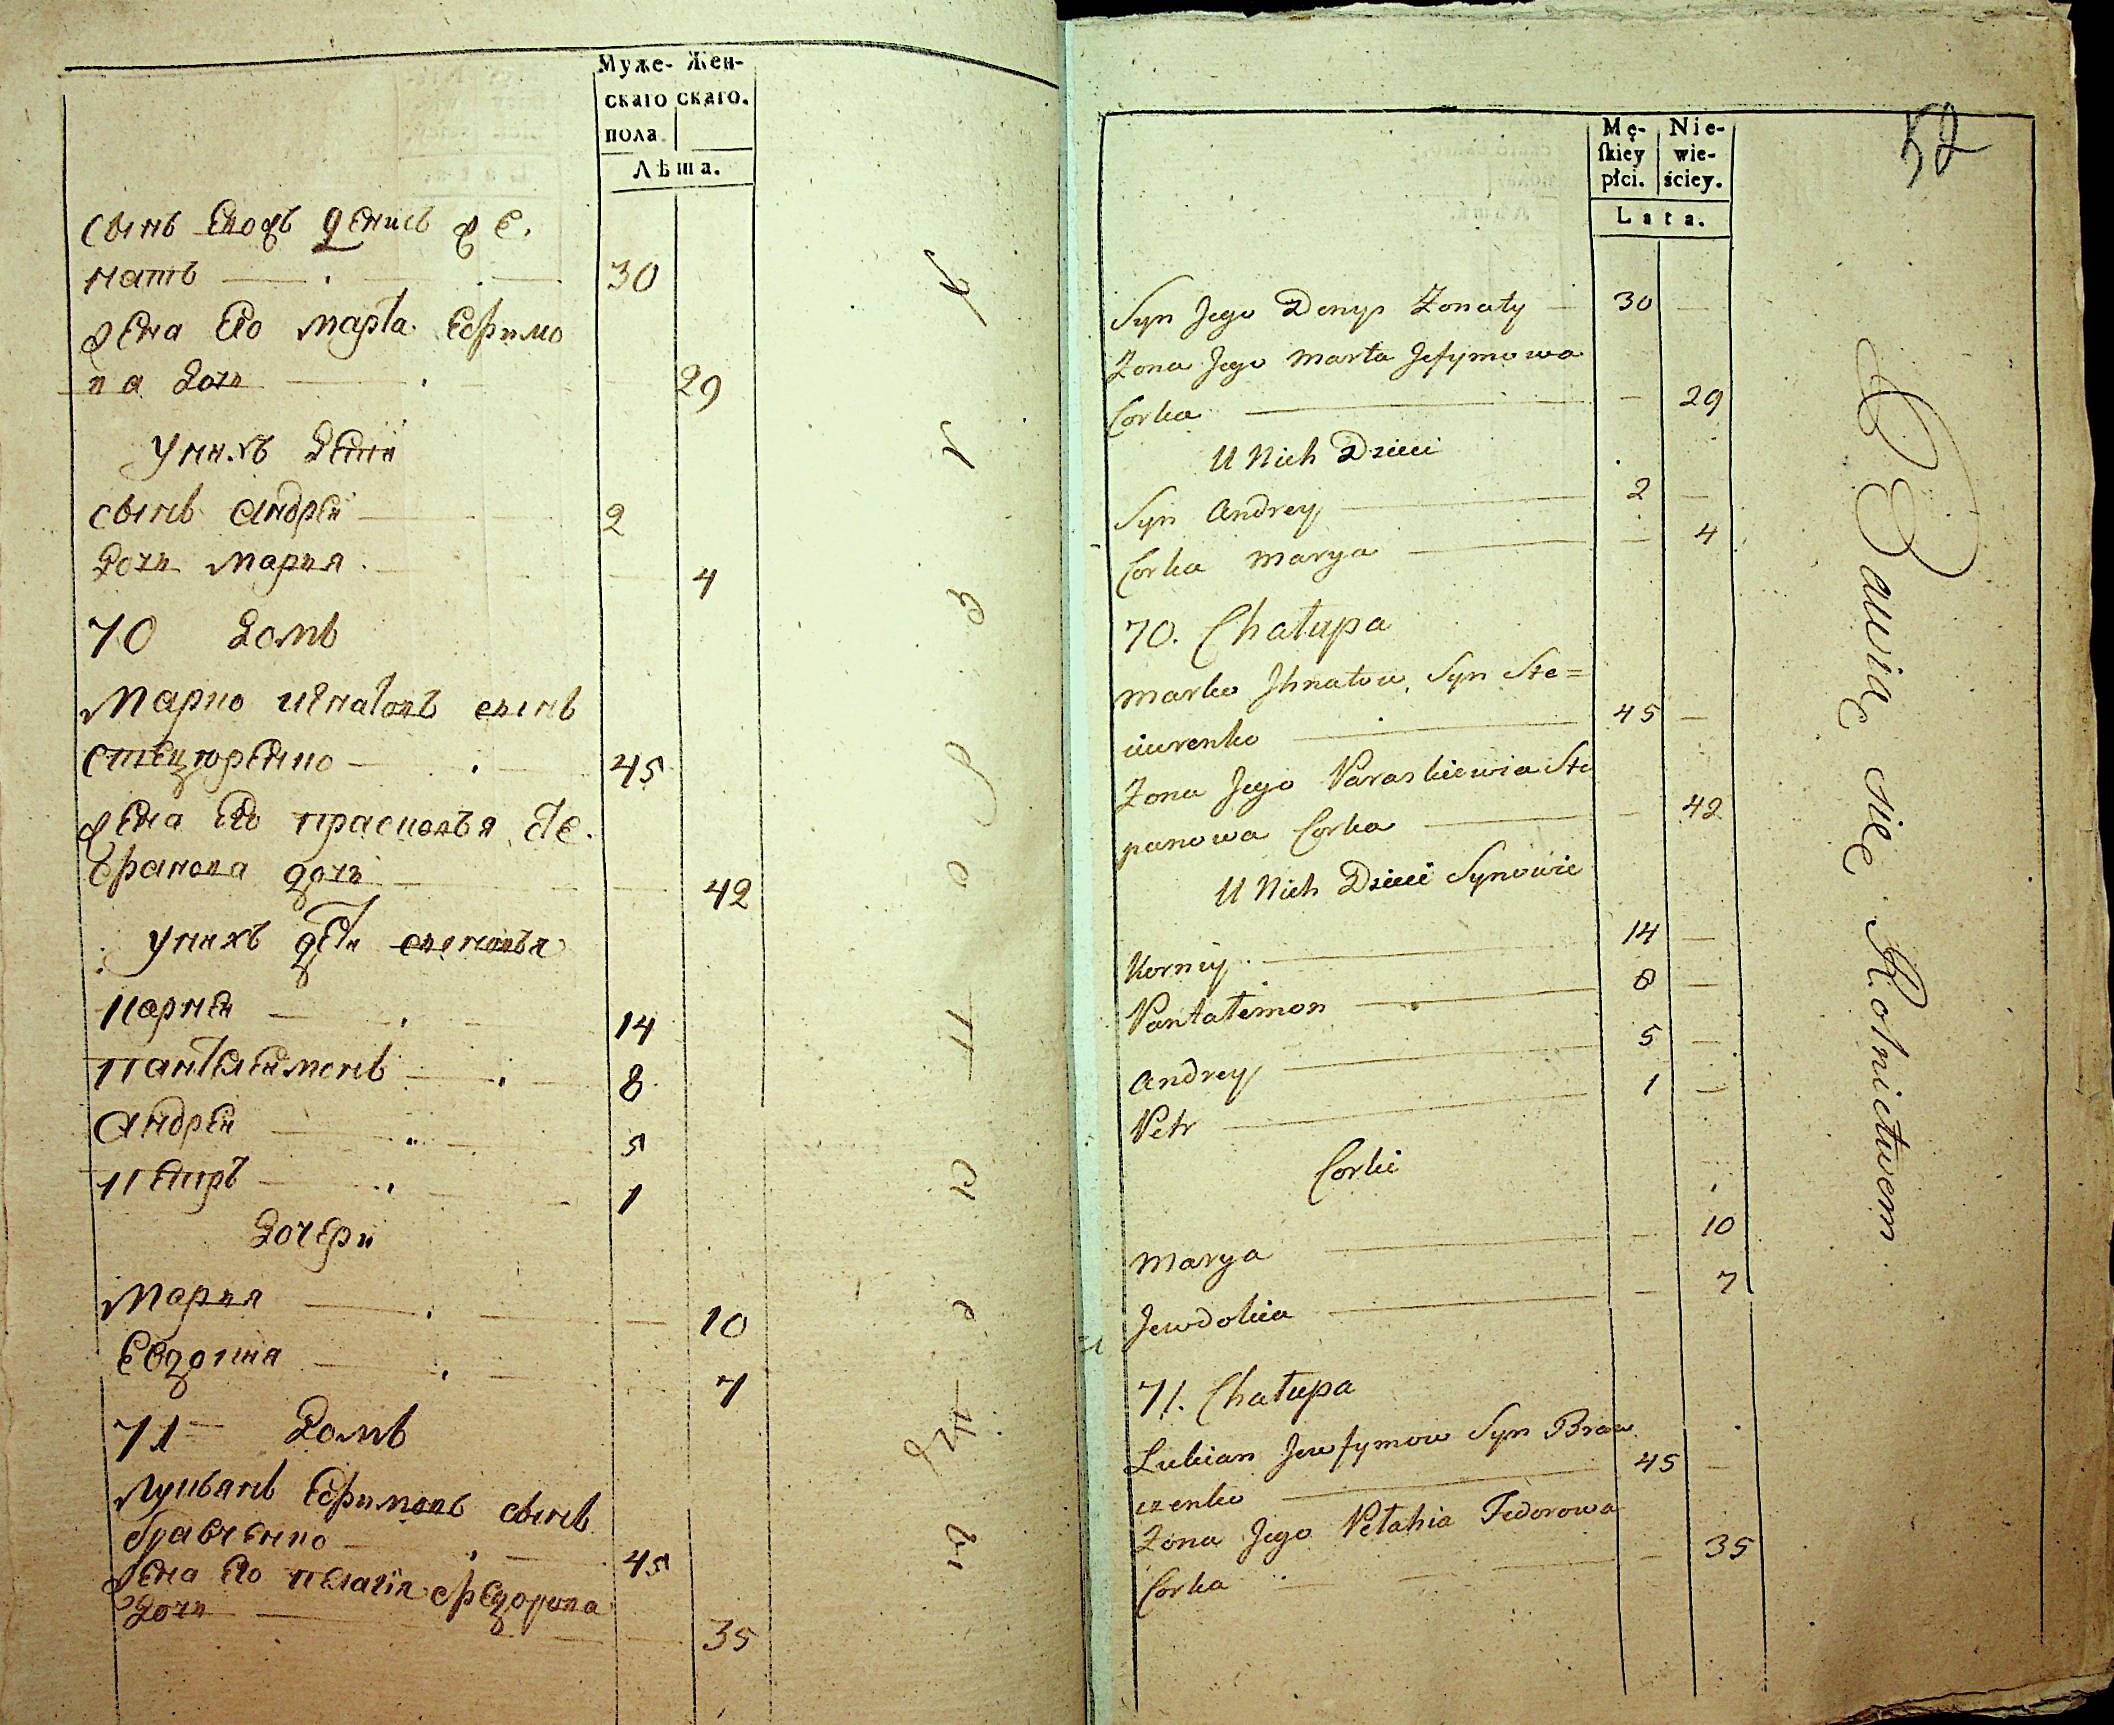 Муже- Жен-
скаго скаго.
пола
Лѣта.
сынъ Его Денись же.
натъ 30
жена Его Марта Ефимо
ва дочь 29
У нихъ дети
сынъ Андрей 2
дочь Мария 4
70 Домъ
Марко Игнатовъ сынъ
Стецюренко 45
жена Его Прасковья Сте.
пранова дочь 42
У нихъ дети сыновья
Корней 14
Пантелеймонъ 8
Андрей 5
Петръ 1
Дочери
Мария 10
Евдокия 7
71 Домъ
Лукьянъ Ефимовъ сынъ
Бравченко 45
жена Его Пелагія Федорова
дочь 35
52
Mę- Nie-
ſkiey wie-
płci. ściey.
Lata.
Syn Jego Denys Zonaty 30
Zona Jego Marta Jefymowa
Corka 29
U Nich Dzieci
Syn Andrey 2
Corka Marya 4
70. Chałupa
Marko Jhnatow Syn Ste=
ciurenko 45
Zona Jego Paraskiewia Ste
panowa Corka 42
U Nich Dzieci Synowie
Korniy 14
Pantałemon 8
Andrey 5
Petr 1
Corki
Marya 10
Jewdokia 7
71. Chałupa
Lukian Jewfymow Syn Braw
czenko 45
Zona Jego Pełahia Fedorowa
Corka 35
Bawią się Rolnictwem